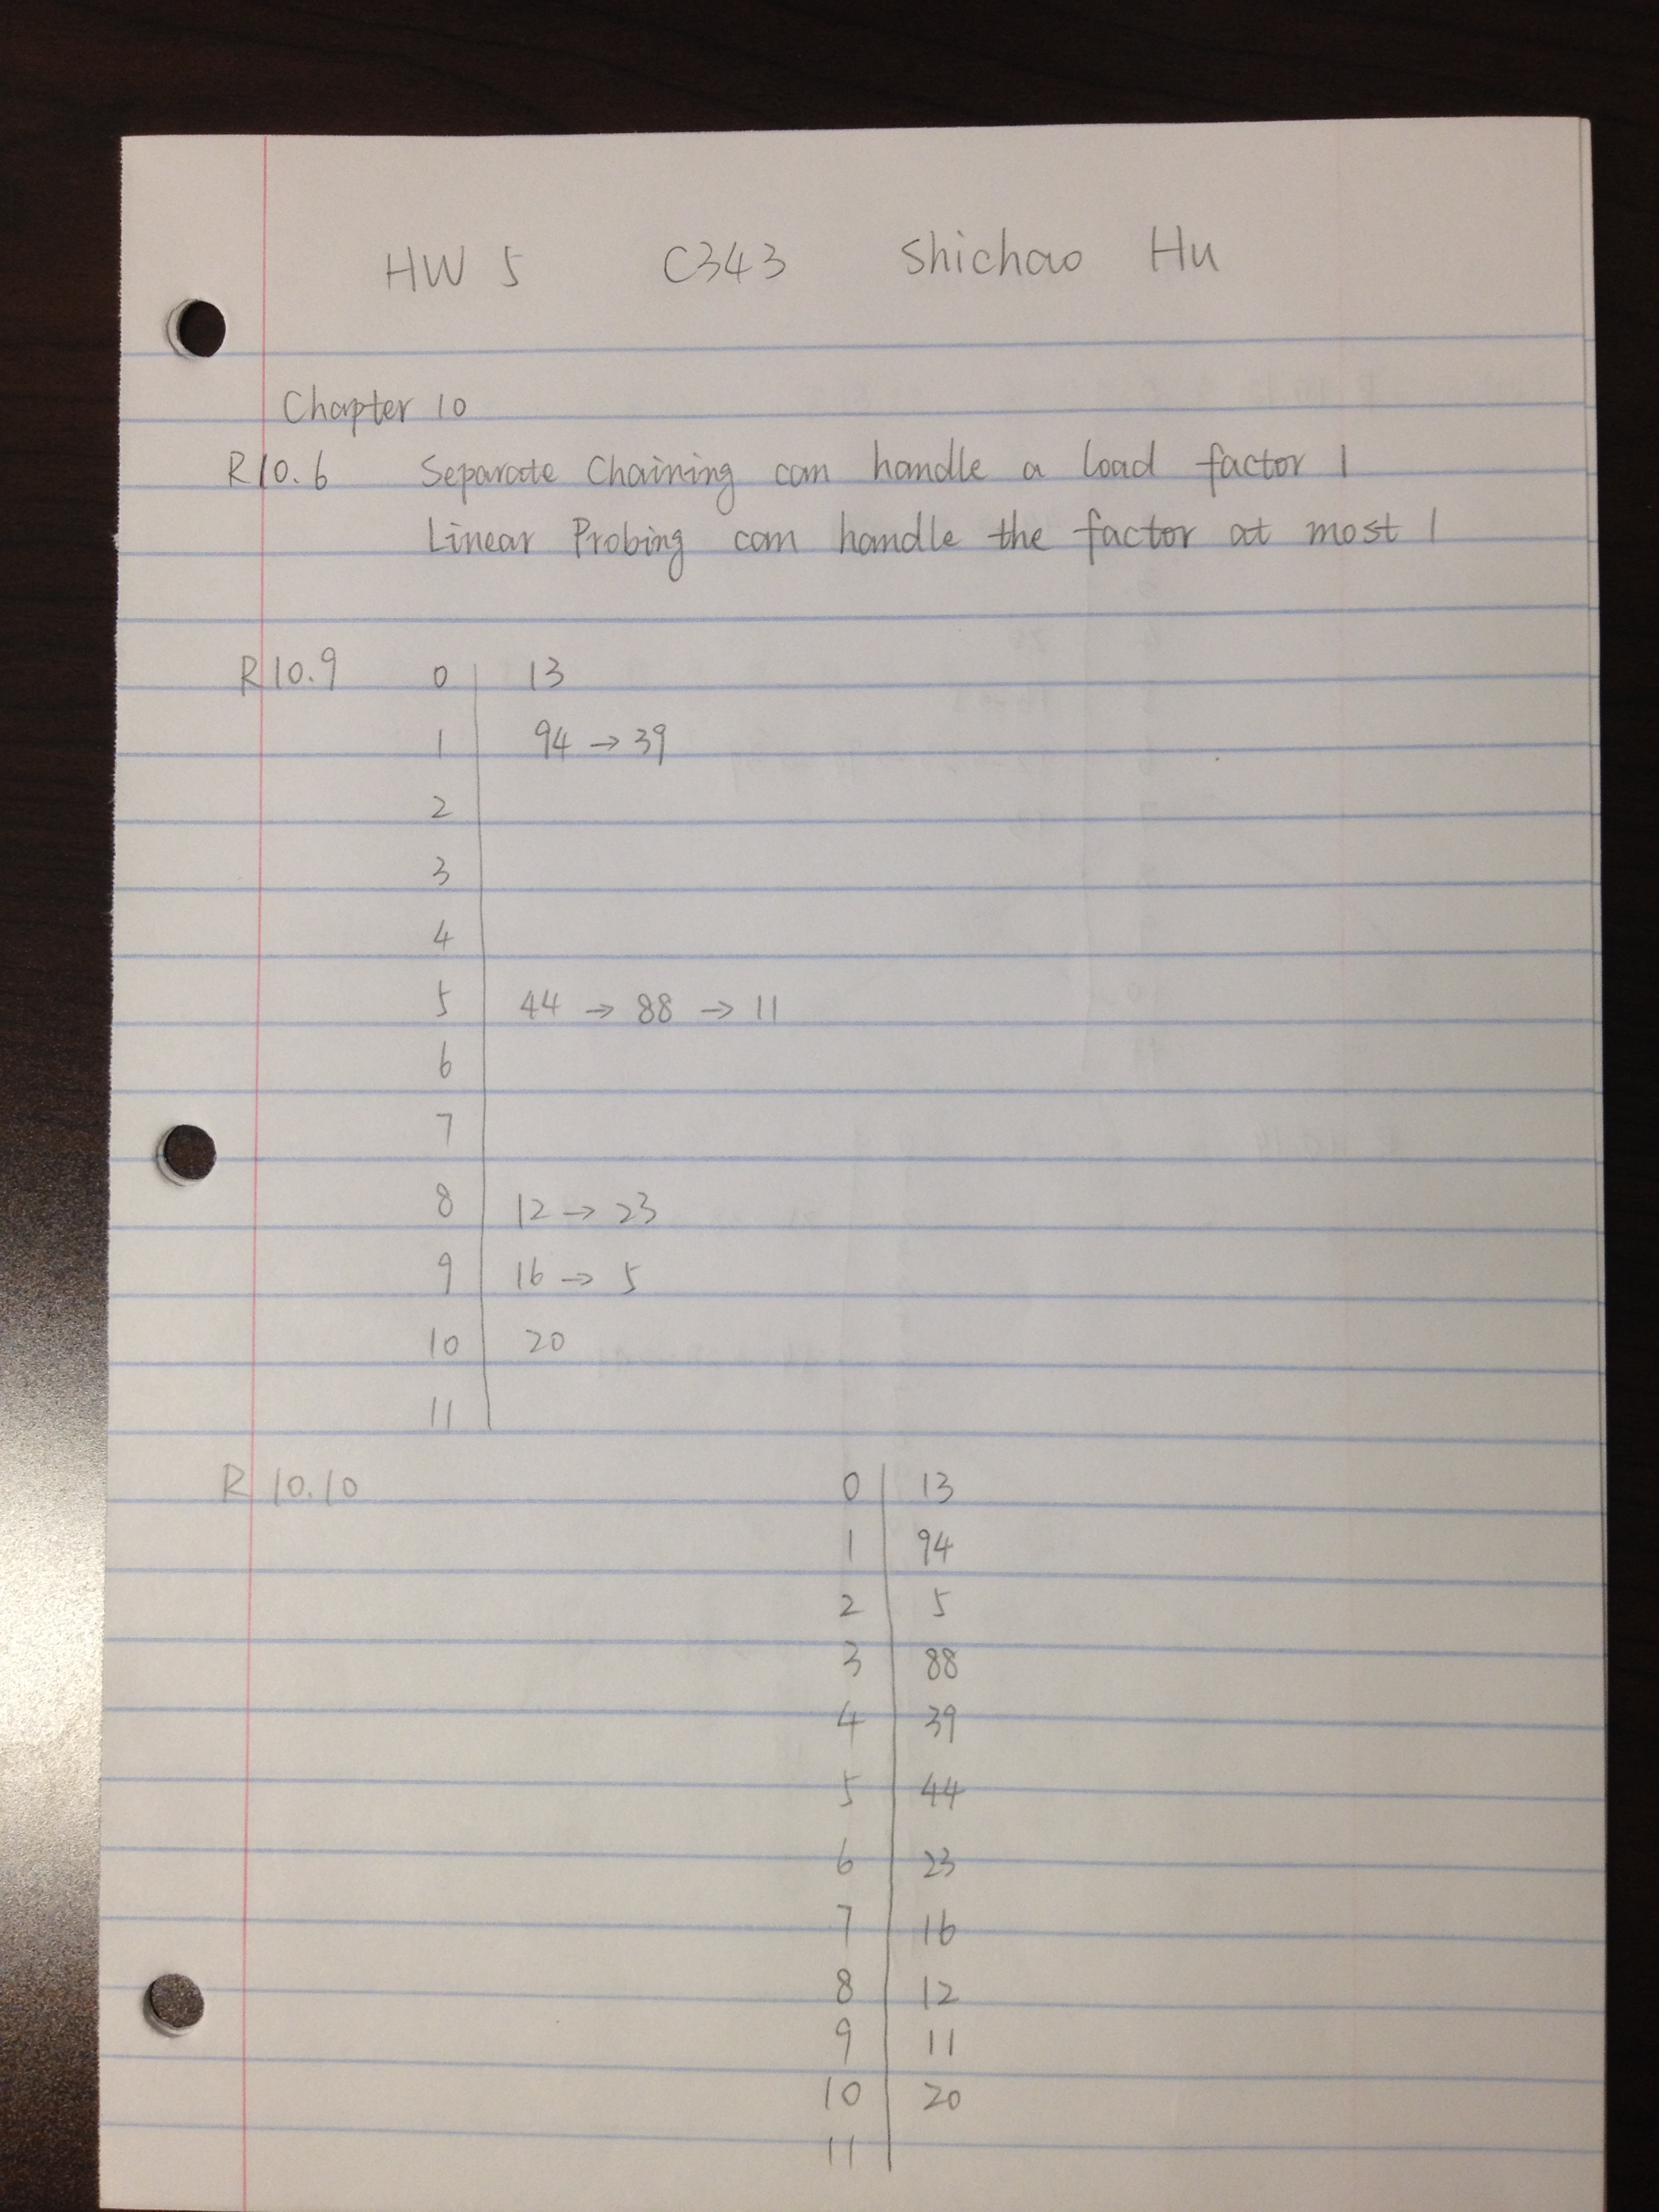 HW 5 C343 Shichao Hu
Chapter 10
R10.6 Separate Chaining can handle a load factor 1
Linear Probing can handle the factor at most 1
R10.9 0 13
1 94 → 39
2
3
4
5 44 → 88 → 11
6
7
8 12 → 23
9 16 → 5
10 20
11
R 10.10 0 13
1 94
2 5
3 88
4 39
5 44
6 23
7 16
8 12
9 11
10 20
11